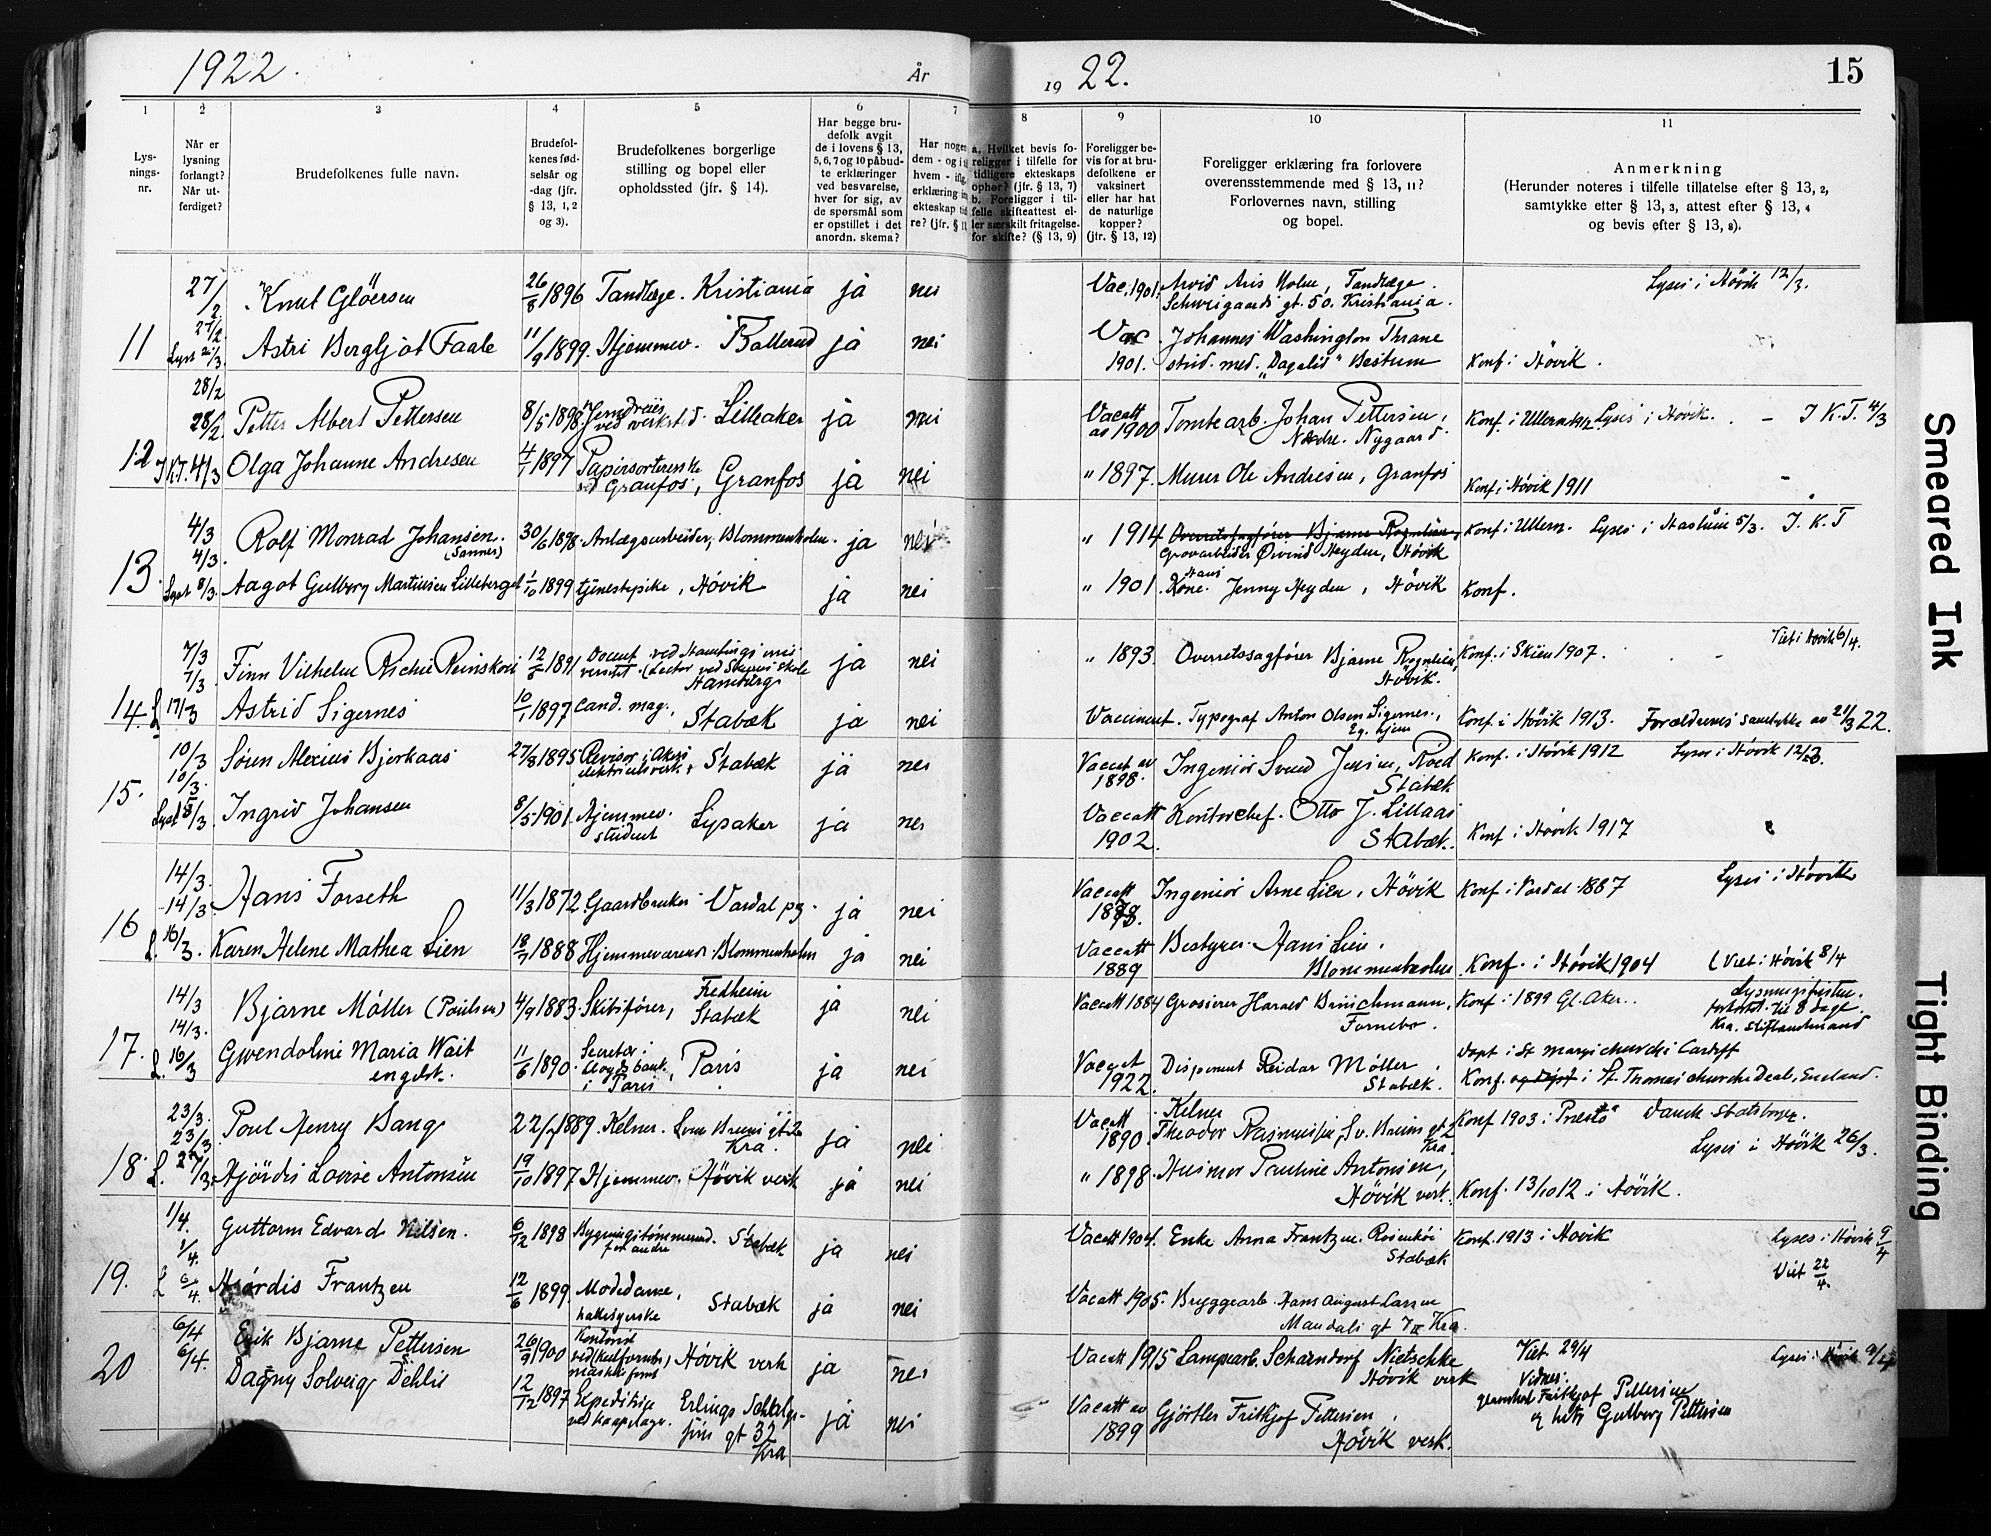 1922.
År
19 22.
15
1
2
3
4
5
6
7
8
9
10
11
Lys-
nings-
nr.
Når er
lysning
forlangt?
Når ut-
ferdiget?
Brudefolkenes fulle navn.
Brudefol-
kenes fød-
selsår og
-dag (jfr.
§ 13, 1, 2
og 3).
Brudefolkenes borgerlige
stilling og bopel eller
opholdssted (jfr. § 14).
Har begge bru-
defolk avgit
de i lovens § 13,
5, 6, 7 og 10 påbud-
te erklæringer
ved besvarelse,
hver for sig, av
de spørsmål som
er opstillet i det
anordn. skema?
Har nogen
dem - og i
hvem - ifig.
erklæring in
ekteskap tid
re? (jfr. § 1
a. Hvilket bevis fo-
religger i tilfelle for
tidligere ekteskaps
ophør? (jfr. § 13, 7)
b. Foreligger i til-
felle skifteattest el-
ler særskilt fritagelse
for skifte? (§ 13, 9)
Foreligger be-
vis for at bru-
defolkene er
vaksinert
eller har hat
de naturlige
kopper?
(jfr. § 13, 12)
Foreligger erklæring fra forlovere
overensstemmende med § 13, 11?
Forlovernes navn, stilling
og bopel.
Anmerkning
(Herunder noteres i tilfelle tillatelse efter § 13, 2,
samtykke efter § 13, 3, attest efter § 13, 4
og bevis efter § 13, 8).
27/2 Knut Glöersen 26/8 1896 Tandlæge. Kristiania ja nei Vac. 1901. Arvid Aris Holm, Tandlæge.
Schweigaards gt. 50. Kristiania.
Lyses i Høvik 12/3.
11 27/2 Astri Bergljot Faale 11/9 1899. Hjemmev. Ballerud ja nei Vac 1901. Johannes Washington Thrane
stud. med. "Dagalid" Bestum Konf. i Høvik.
28/2
28/2. Petter Albert Pettersen 8/5 1898 Jernbreier
ved verksted. Lilleaker ja nei Vacatt av 1900 Tomtearb. Johan Pettersen,
Nedre. Nygaard. Konf. i Ullern Lyses i Høvik. - I K.T. 4/3
12 I K.T. 4/3 Olga Johanne Andresen 4/1 1897 Papirsortererske
ved Granfos, Granfos ja nei " 1897. Murer Ole Andresen, Granfos Konf. i Høvik 1911 -
4/3
4/3. Rolf Monrad Johansen.
(Sanner) 30/6 1898. Anlægsarbeider, Blommenholm. ja nei " 1914 Overretssagfører Bjarne Rognlien,
Grovarbeider Øivind Heyden, Høvik Konf. i Ullern. Lyses i Haslum 5/3. I. K. T
13. Lyst 8/3. Aagot Gulborg Martinsen Lilleberget 1/10 1899 tjenestepike, Høvik ja nei " 1901. Hans
Kone. Jenny Heyden, Høvik Konf.
7/3
7/3. Finn Vilhelm Rieber Reinskou 12/8 1891 Docent ved Hamburgs uni-
versitet. (Lector ved Skiens skole
Hamburg ja nei " 1893. Overretssagfører Bjarne Rognlien,
Høvik. Konf. i Skien 1907. Viet i Høvik 6/4.
14. L 17/3 Astrid Sigernes 10/1 1897 cand. mag., Stabæk ja nei Vaccineret. Typograf Anton Olsen Sigernes.,
Eg. hjem Konf. i Høvik 1913. Forældrenes samtykke av 21/3 22.
10/3
10/3. Søren Alexius Bjerkaas 27/8 1895 Revisor i Akers
elektricitetsverk., Stabæk ja nei Vaccat av
1898. Ingeniør Svend Jensen, Roed
Stabæk Konf. i Høvik 1912 Lyses i Høvik 12/3.
15. Lyst 18/3. Ingrid Johansen 8/5 1901. Hjemmev.
student Lysaker ja nei Vaccatt
1902. Kontorchef. Otto J. Lillaas
Stabæk. Konf. i Høvik 1917
14/3.
14/3. Hans Forseth 11/3 1872. Gaardbruker Vardal pg. ja nei Vaccatt Ingeniør Arne Lien, Høvik Konf. i Vardal 1887 Lyses i Høvik
16 L. 16/3. Karen Helene Mathea Lien 18/7 1888 Hjemmeværend. Blommenholm ja nei Vaccatt
1889 Bestyrer Hans Lien.
Blommenholm. Konf. i Høvik 1904 (Viet i Høvik 8/4
14/3
14/3. Bjarne Möller (Poulsen) 4/9 1883. Skibsfører, Fredheim
Stabæk ja nei Vaccatt 1884 Grosserer Harald Brinchmann,
Fornebo. Konf. i 1899 Gl. Aker. Lysningsfristen.
forkortet. til 8 dage.
Kra. Stiftamtmand
17. L. 16/3 Gwendoline Maria Wait
engelsk. 11/6 1890. Secretær i
Lloyds bank
i Paris, Paris ja nei Vaccat
1922. Disponent Reidar Möller
Stabæk. Døpt i St Marys church i Cardiff
Konf. i St. Thomas church Deal, England.
23/3.
23/3 Poul Henry Bang 22/7 1889. Kelner. Sven Bruns gt. 2
Kra. ja nei Vacatt
1890. Kelner
Theodor Rasmussen, Sv. Bruns gt 2
Kra. Konf 1903 i Præstø Dansk Statsborger.
Lyses i Høvik 26/3.
18. L. 27/3. Hjördis Lovise Antonsen 19/10 1897 Hjemmev. Høvik verk ja nei " 1898. Husmor Pauline Antonsen,
Høvik verk. Konf. 13/10 12 i Høvik.
1/4.
1/4. Guttorm Edvard Nilsen. 6/12 1898 Bygningstømmermd.
for andre Stabæk ja nei Vacatt 1904. Enke Anna Frantzen. Rosenhöi
Stabæk Konf. 1913 i Høvik Lyses i Høvik 9/4
Viet 22/4.
19. L 6/4. Hjørdis Frantzen 12/6 1899. Modedame,
hattesyerske Stabæk ja nei Vacatt 1905. Bryggearb. Hans August Larsen
Mandals gt 7 III Kra.
6/4
6/4. Erik Bjarne Pettersen 26/9 1900 Kontorist
Høvik verk ja nei Vacatt 1915 Lampearb. Scharndorf Nietschke
Høvik verk Viet 29/4 Lyses i Høvik 9/4
Vidner:
20 Dagny Solveig Dehlie 12/12 1897 Expeditrice
ved kaapelager. Erlings Schelge-
gt 32
Kra ja nei Vacatt av
1899 Gjørtler Fritjof Pettersen,
Høvik verk. Fritjof Pettersen
og hustr Gulborg Pettersen
Smeared Ink
Tight Binding